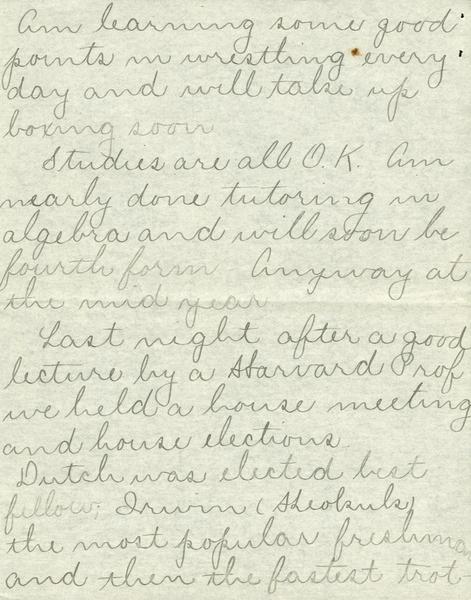 Am learning some good
points in wrestling every
day and will take up
boxing soon
Studies are all O.K. Am
nearly done tutoring in
algebra and will soon be
fourth form Anyway at
the mid year
Last night after a good
lecture by a Harvard Prof
we held a house meeting
and house elections
Dutch was elected best
fellow; Irwin (Sheokuk)
the most popular freshman
and then the fastest trot